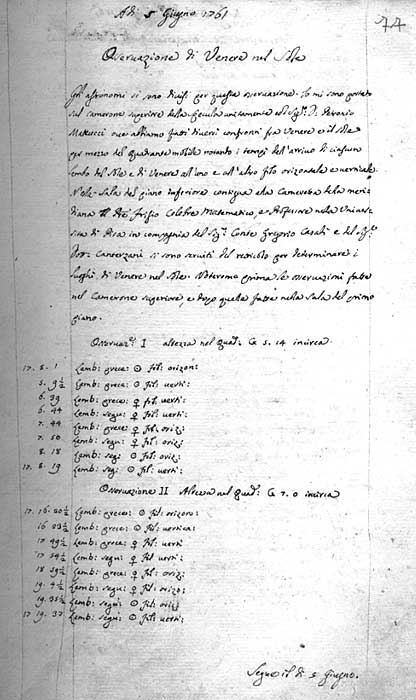 Adi 5 Giugno 1761
77
Osservazione di Venere nel Sole
Gli astronomi si sono divisi per questa osservazione. Io mi sono portato
sul camerone superiore della specula unitamente al Sig.r D. Petronio
Matteucci ove abbiamo fatti diversi confronti fra Venere e il Sole
per mezzo del Quadrante mobile notando i tempi dell'arrivo di ciascun
lembo del Sole e di Venere all'uno e all'altro filo orizontale e verticale.
Nella Sala del piano inferiore contigua alla Camera della meri-
diana il Frisio Celebre Matematico, e Professore nella Univer-
sità di Pisa in compagnia del Sig.r Conte Gregorio Casali e del Sig.r
Dott. Canterzani si sono serviti del reticolo per determinare i
luoghi di Venere nel Sole. Noteremo prima le osservazioni fatte
nel Camerone superiore, e dopo quelle fatte nella Sala del primo
piano.
Osservaz. I altezza nel Quad. G 5. 14 incirca
17. 5. 1 Lemb: prece: ☉ fil: orizon:
5. 9½ Lemb: prece: ☉ fil: verti:
6. 39 Lemb: prece: ♀ fil: verti:
6. 44 Lemb: segu: ♀ fil: verti:
7. 44 Lemb: prece: ♀ fil: oriz:
7. 50 Lemb: segu: ♀ fil: oriz:
8. 18 Lemb: seg: ☉ fil: oriz:
17. 8. 19 Lemb: seg: ☉ fil: verti:
Osservazione II Altezza nel Quad: G 7. 0 incirca
17. 16. Lemb: prece: ☉ fil: orizon:
16 Lemb: prece: ☉ fil: vertica:
17 49½ Lemb: prece: ♀ fil: verti
17 54½ Lemb: segu: ♀ fil: verti
18 59½ Lemb: prece: ♀ fil: oriz:
19. 4½ Lemb: segu: ♀ fil: orizo:
19. 35½ Lemb: segu: ☉ fil: oriz
17 19. 37 Lemb: segu: ☉ fil: verti:
Segue il di 5 giugno.